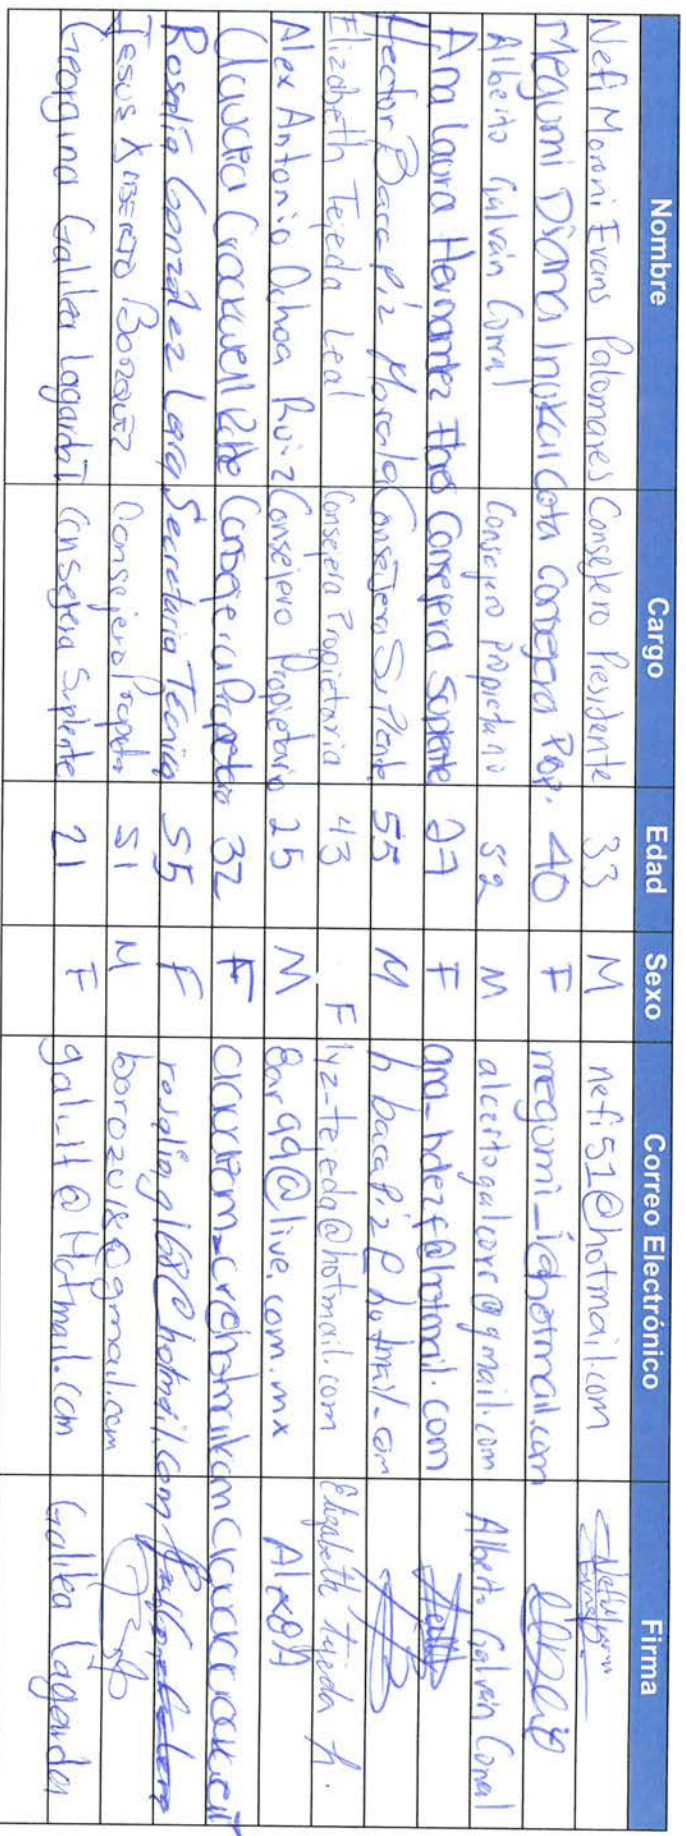 Nombre Cargo Edad Sexo Correo Electrónico Firma
Nefi Moroni Evans Palomares Consejero Presidente 33 M nefi51@hotmail.com
Megumi Diana Inukai Cota Consejera Prop. 40 F megumi_i@hotmail.com
Alberto Galván Corral Consejero Propietario 52 M albertogalcorr@gmail.com Alberto Galván Corral
Ana Laura Hernandez Consejera Suplente 27 F ana_hdezf@hotmail.com
Hector Baca Piz Consejero Suplente 55 M hbacapiz@hotmail.com
Elizabeth Tejeda Leal Consejera Propietaria 43 F lyz-tejeda@hotmail.com Elizabeth Tejeda
Alex Antonio Ochoa Ruiz Consejero Propietario 25 M @live.com.mx
Claudia Crockwell Consejera 32 F
Rosalía González Lara Secretaria Técnica 55 F
Jesus Consejero 51 M borozu18@gmail.com
Georgina Galilea Lagarda Consejera Suplente 21 F gali_lt@Hotmail.com Galilea Lagarda